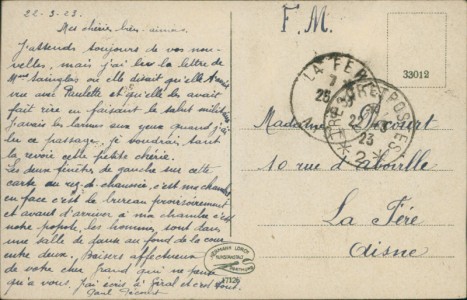 22-3-23.
Mes chéries bien-aimées
J'attends toujours de vos nou-
velles, mais j'ai lu la lettre de
Mme où elle disait qu'elle
vue avec Paulette et qu'elle les avait
fait rire en faisant le salut militaire
J'avais les larmes aux yeux quand j'ai
lu ce passage, je voudrais tant
la revoir cette petite chérie.
Les deux fenêtres de gauche sur cette
carte du rez-de-chaussée, c'est ma chambre
en face c'est le bureau provisoirement
et avant d'arriver à ma chambre c'est
notre popote, les hommes sont dans
une salle de danse au fond de la cour
entre deux. Baisers affectueux
de votre cher grand qui ne pense
qu'à vous. J'ai écris à et c'est tout.
Paul Décourt
F. M.
33012
LA FERE
TRESOR ET POSTES
22 - 3
23
2
Madame Décourt
10 rue d'aboville
La Fère
Aisne
17126